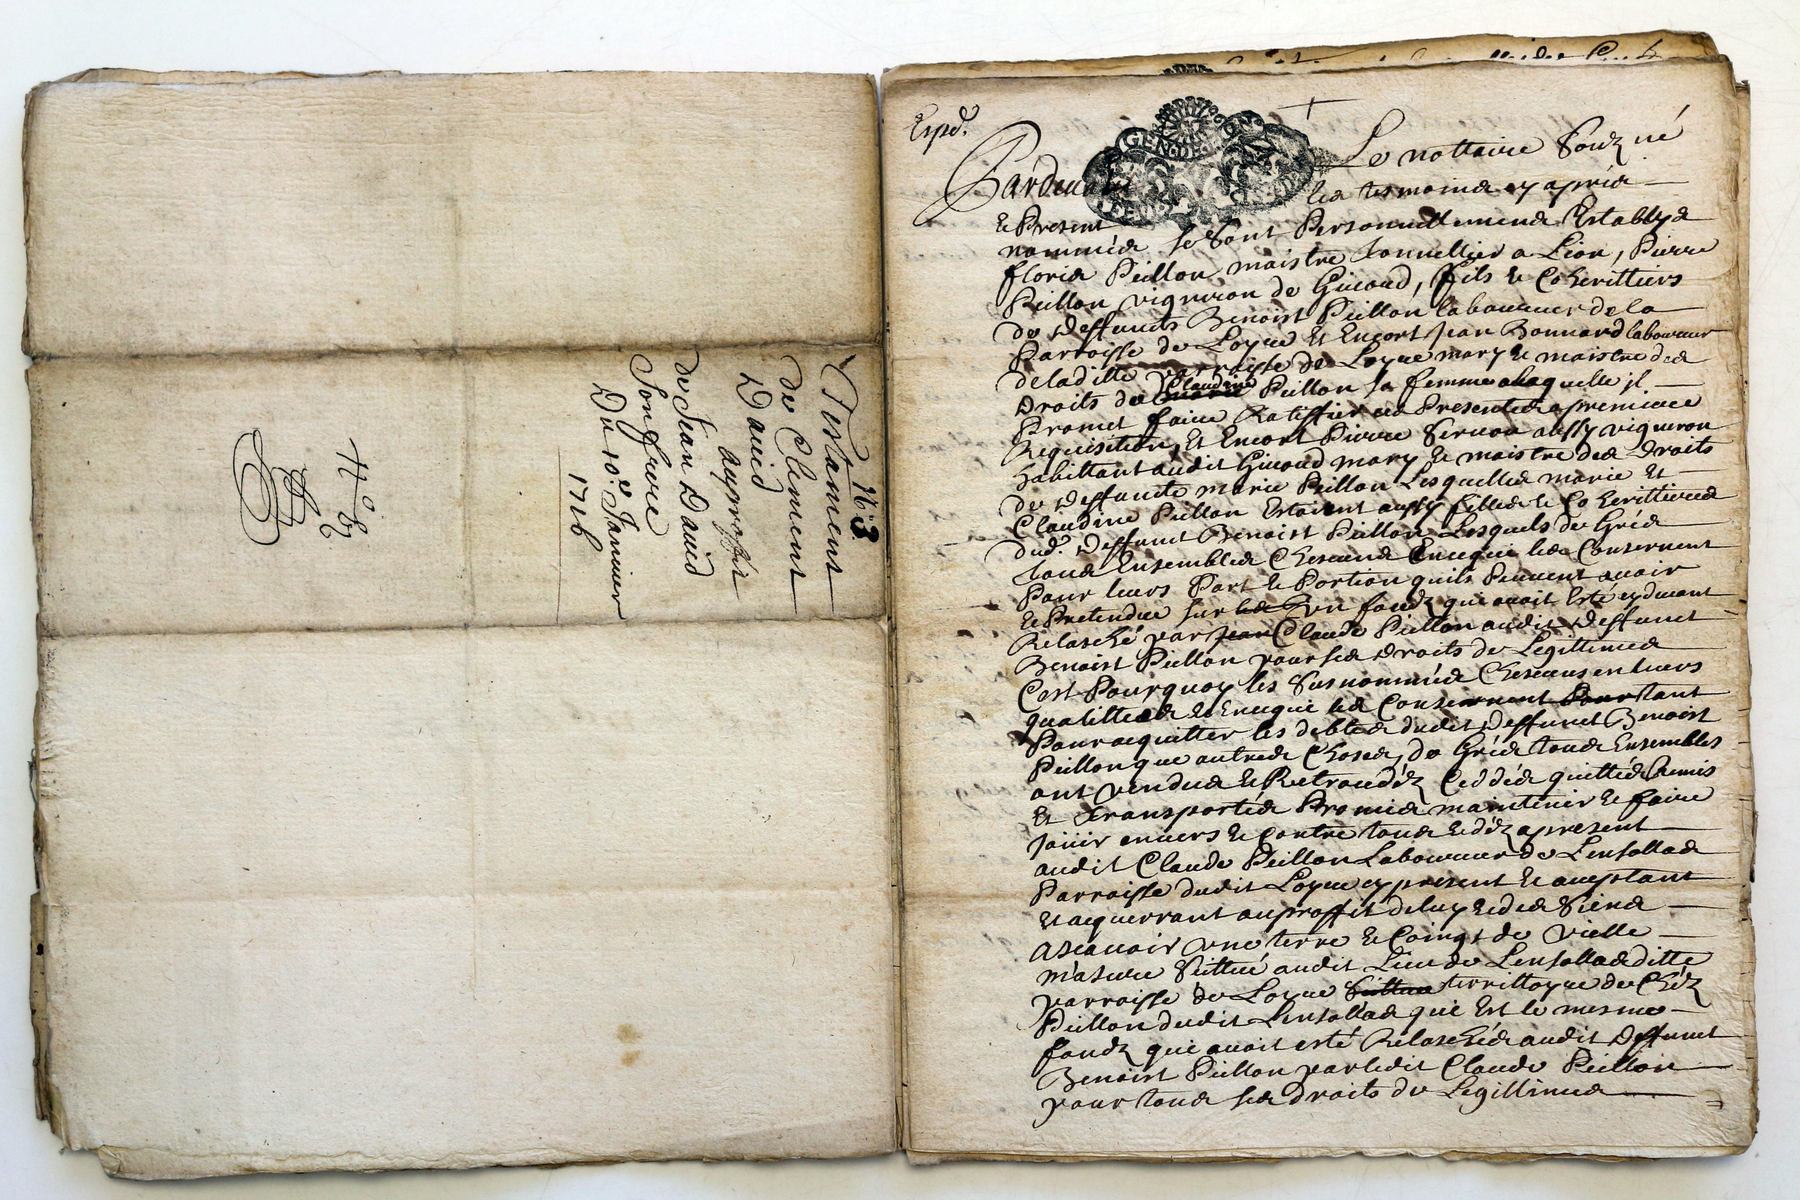 N.° 3
Testament
de Clement
David
au proffit
de Jean David
Son frere
Du 10.e Janvier
1716
N.° E
Expd.
Pardevant Le nottaire Souz né
Et Present les tesmoins cy aprés
nommés se Sont Personnellement Establys
floris Peillon maistre Tonnellier a Lion, Pierre
Peillon vigneron de Gileaud, fils & Coheritiers
de deffunts Benoist Peillon laboureur de la
Parroisse de Loyue Et Encort Jean Bonnard laboureur
de laditte parroisse de Loyue mary & maistre des
Droits de Claudine Peillon sa femme a laquelle jl
Promet faire Ratiffier ces Presentes a premiere
Requisition, Et Encort Pierre Vernou aussy vigneron
habittant audit Gileaud mary & maistre des Droits
de deffunte marie Peillon Lesquelles marie Et
Claudine Peillon Estoient aussy filles & Coherittieres
dud.t deffunt Benoist Peillon Lesquels de Grés
tous Ensembles Chescuns Enceque les Consernent
Pour leurs Part & Portion quils Peuvent avoir
& Pretendre sur un fondz que avoit Esté cydevant
Relasché par Jean Claude Peillon audit deffunt
Benoist Peillon pour ses droits de Legittimes
Cest Pourquoy les Susnommés Chescuns en leurs
qualittés & Enceque les Consernent Pour tant
Pour acquitter les debtes dudit deffunct Benoist
Peillon que autres Choses, de Grés tous Ensembles
ont vendus & Ceddés quittés Remis
Et Transportés Promis maintenir & faire
Joüir envers & Contre tous a present
audit Claude Peillon Laboureur de Lensollas
Parroisse dudit Loyue cy present & aceptant
Et acquerrant au proffit deluy & des Siens
ascavoir une terre & Coings de vielle
masure Scittué audit Lieu de Lensollas ditte
parroisse de Loyue territtoyre de Chéz
Peillon dudit Lensollas que Est le mesme
fondz que avoit esté Relaschés audit deffunct
Benoist Peillon par ledit Claude Peillon
pour tous ses droits de Legittimes